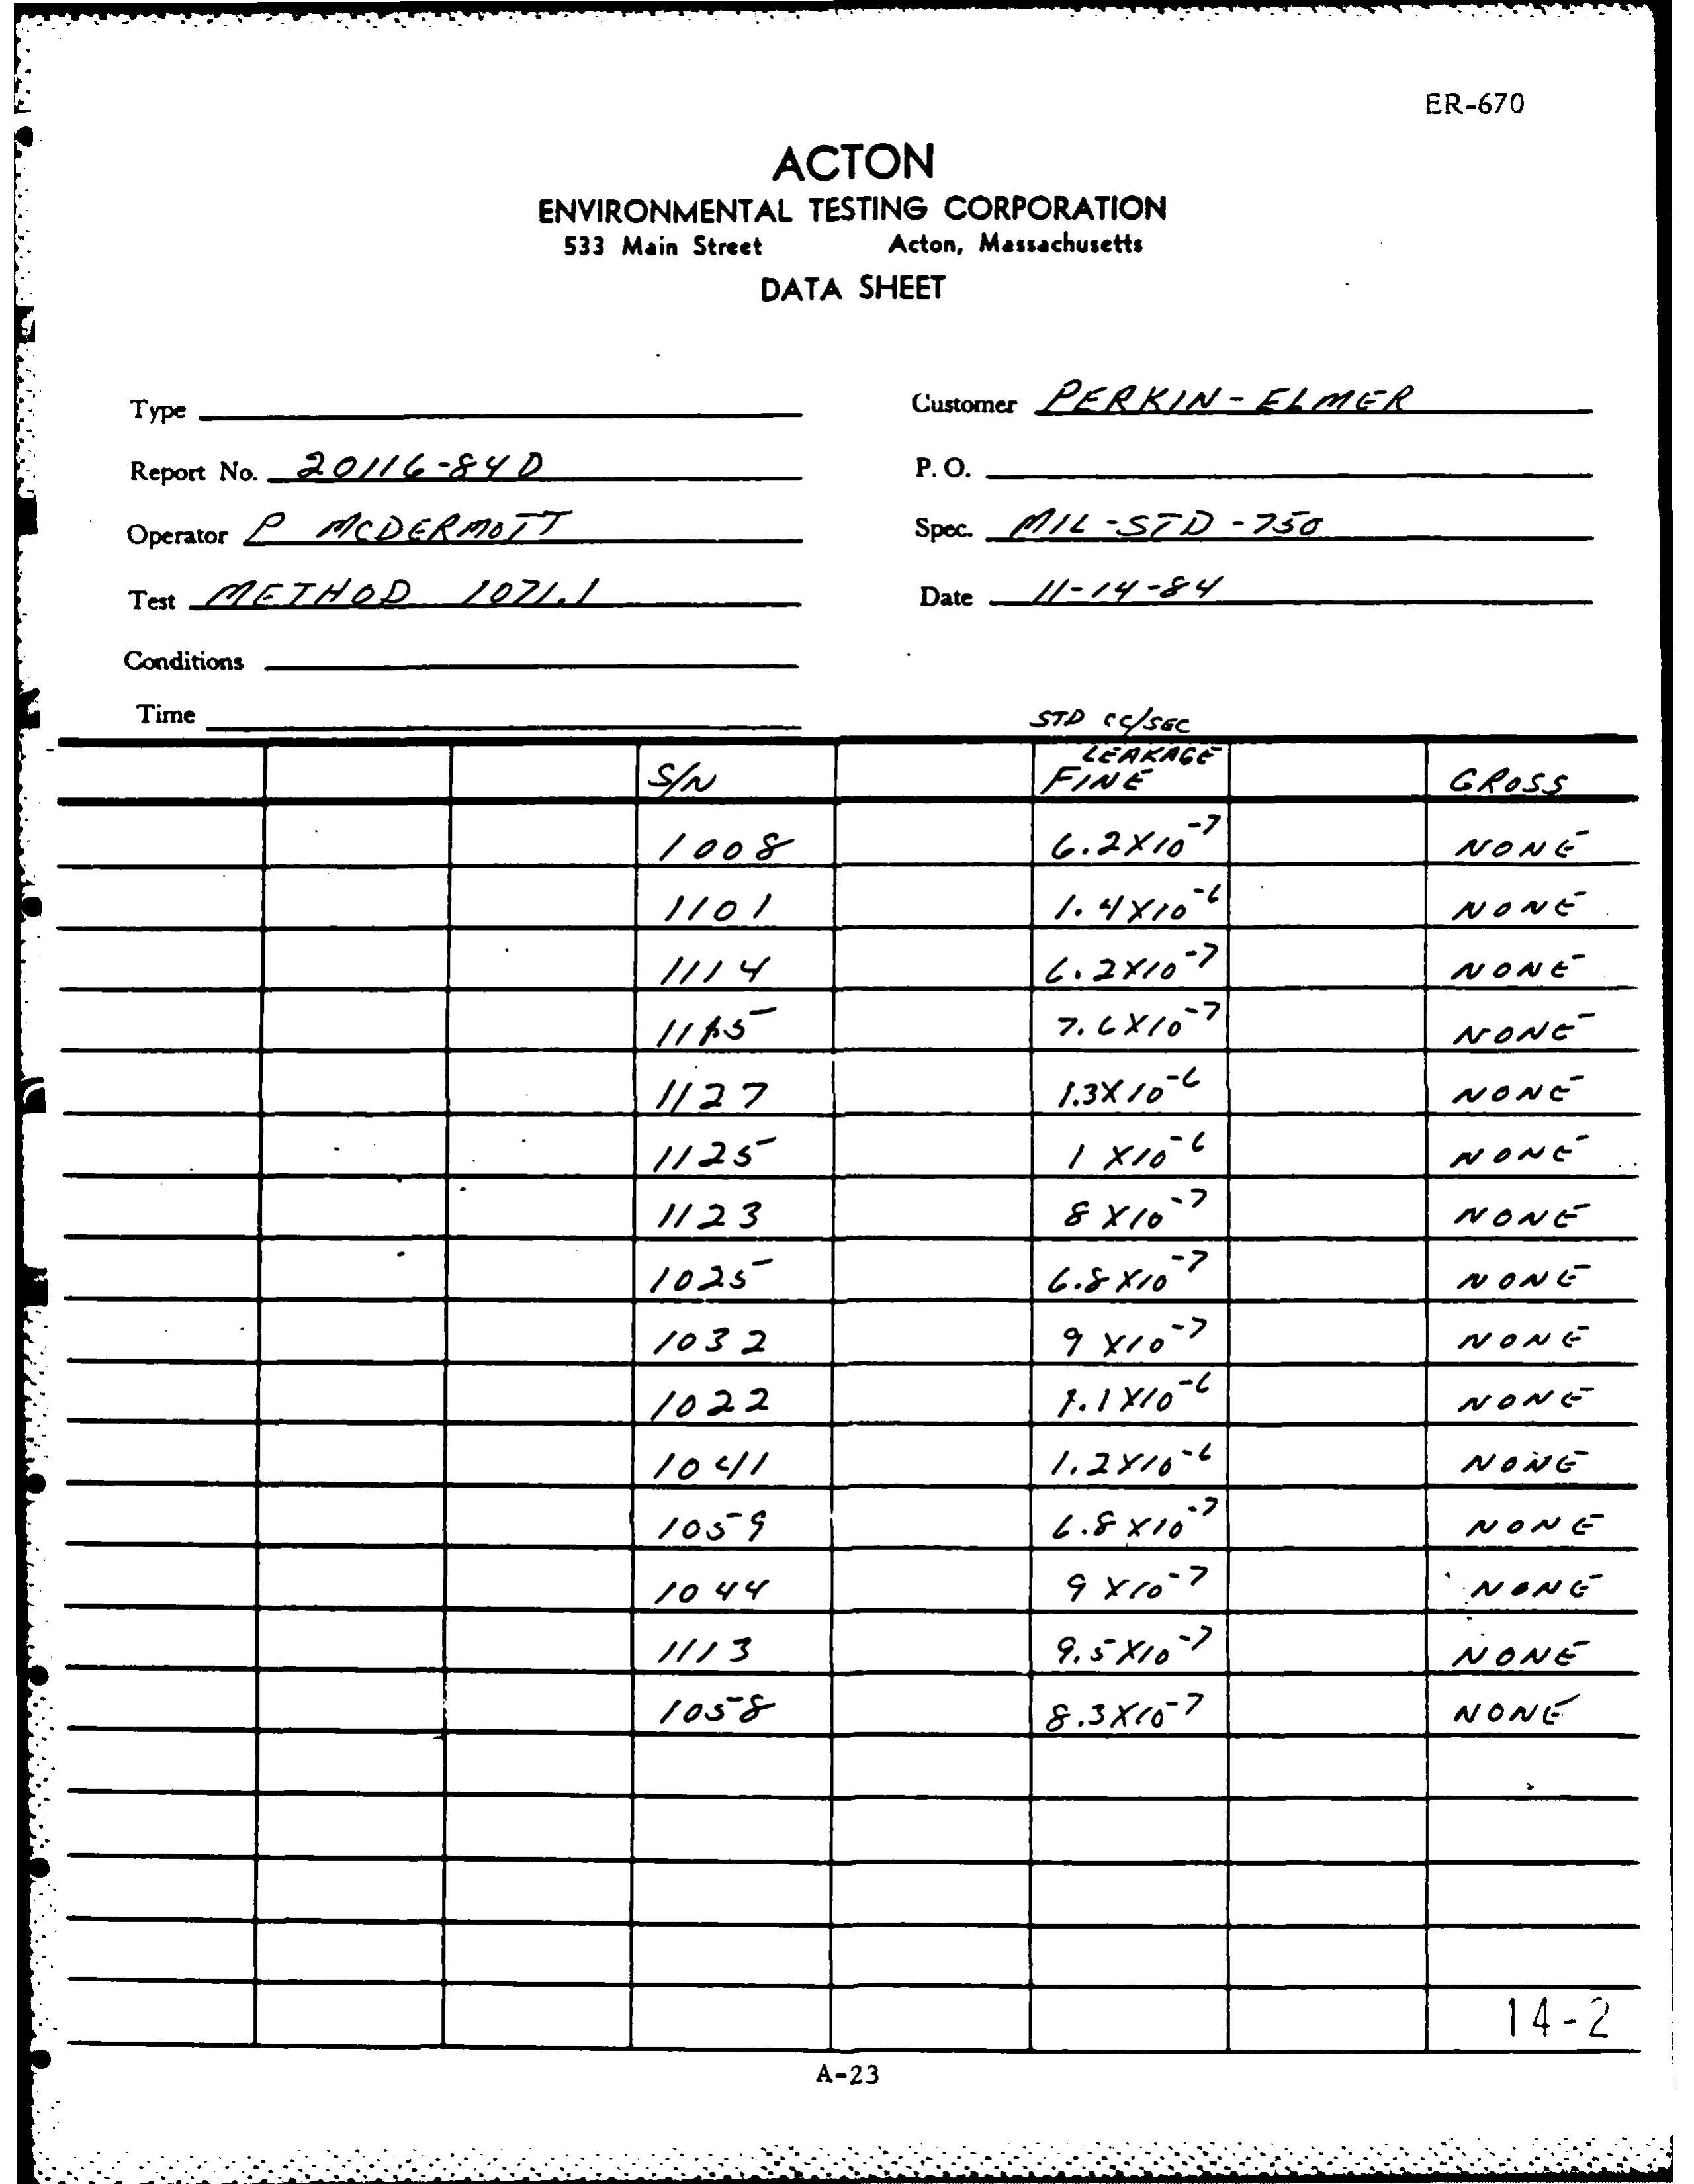 ER-670
ACTON
ENVIRONMENTAL TESTING CORPORATION
533 Main Street Acton, Massachusetts
DATA SHEET
Type
Customer PERKIN-ELMER
Report No. 20116-84D
P.O.
Operator P MCDERMOTT
Spec. MIL-STD-750
Test METHOD 1071.1
Date 11-14-84
Conditions
Time
STD CC/SEC
LEAKAGE
S/N FINE GROSS
1008 6.2X10⁻⁷ NONE
1101 1.4X10⁻⁶ NONE
1114 6.2X10⁻⁷ NONE
7.6X10⁻⁷ NONE
1127 1.3X10⁻⁶ NONE
1125 1 X10⁻⁶ NONE
1123 8 X10⁻⁷ NONE
1025 6.8X10⁻⁷ NONE
1032 9 X10⁻⁷ NONE
1022 1.1X10⁻⁶ NONE
1041 1.2X10⁻⁶ NONE
1059 6.8X10⁻⁷ NONE
1044 9 X10⁻⁷ NONE
1113 9.5X10⁻⁷ NONE
1058 8.3X10⁻⁷ NONE
14-2
A-23